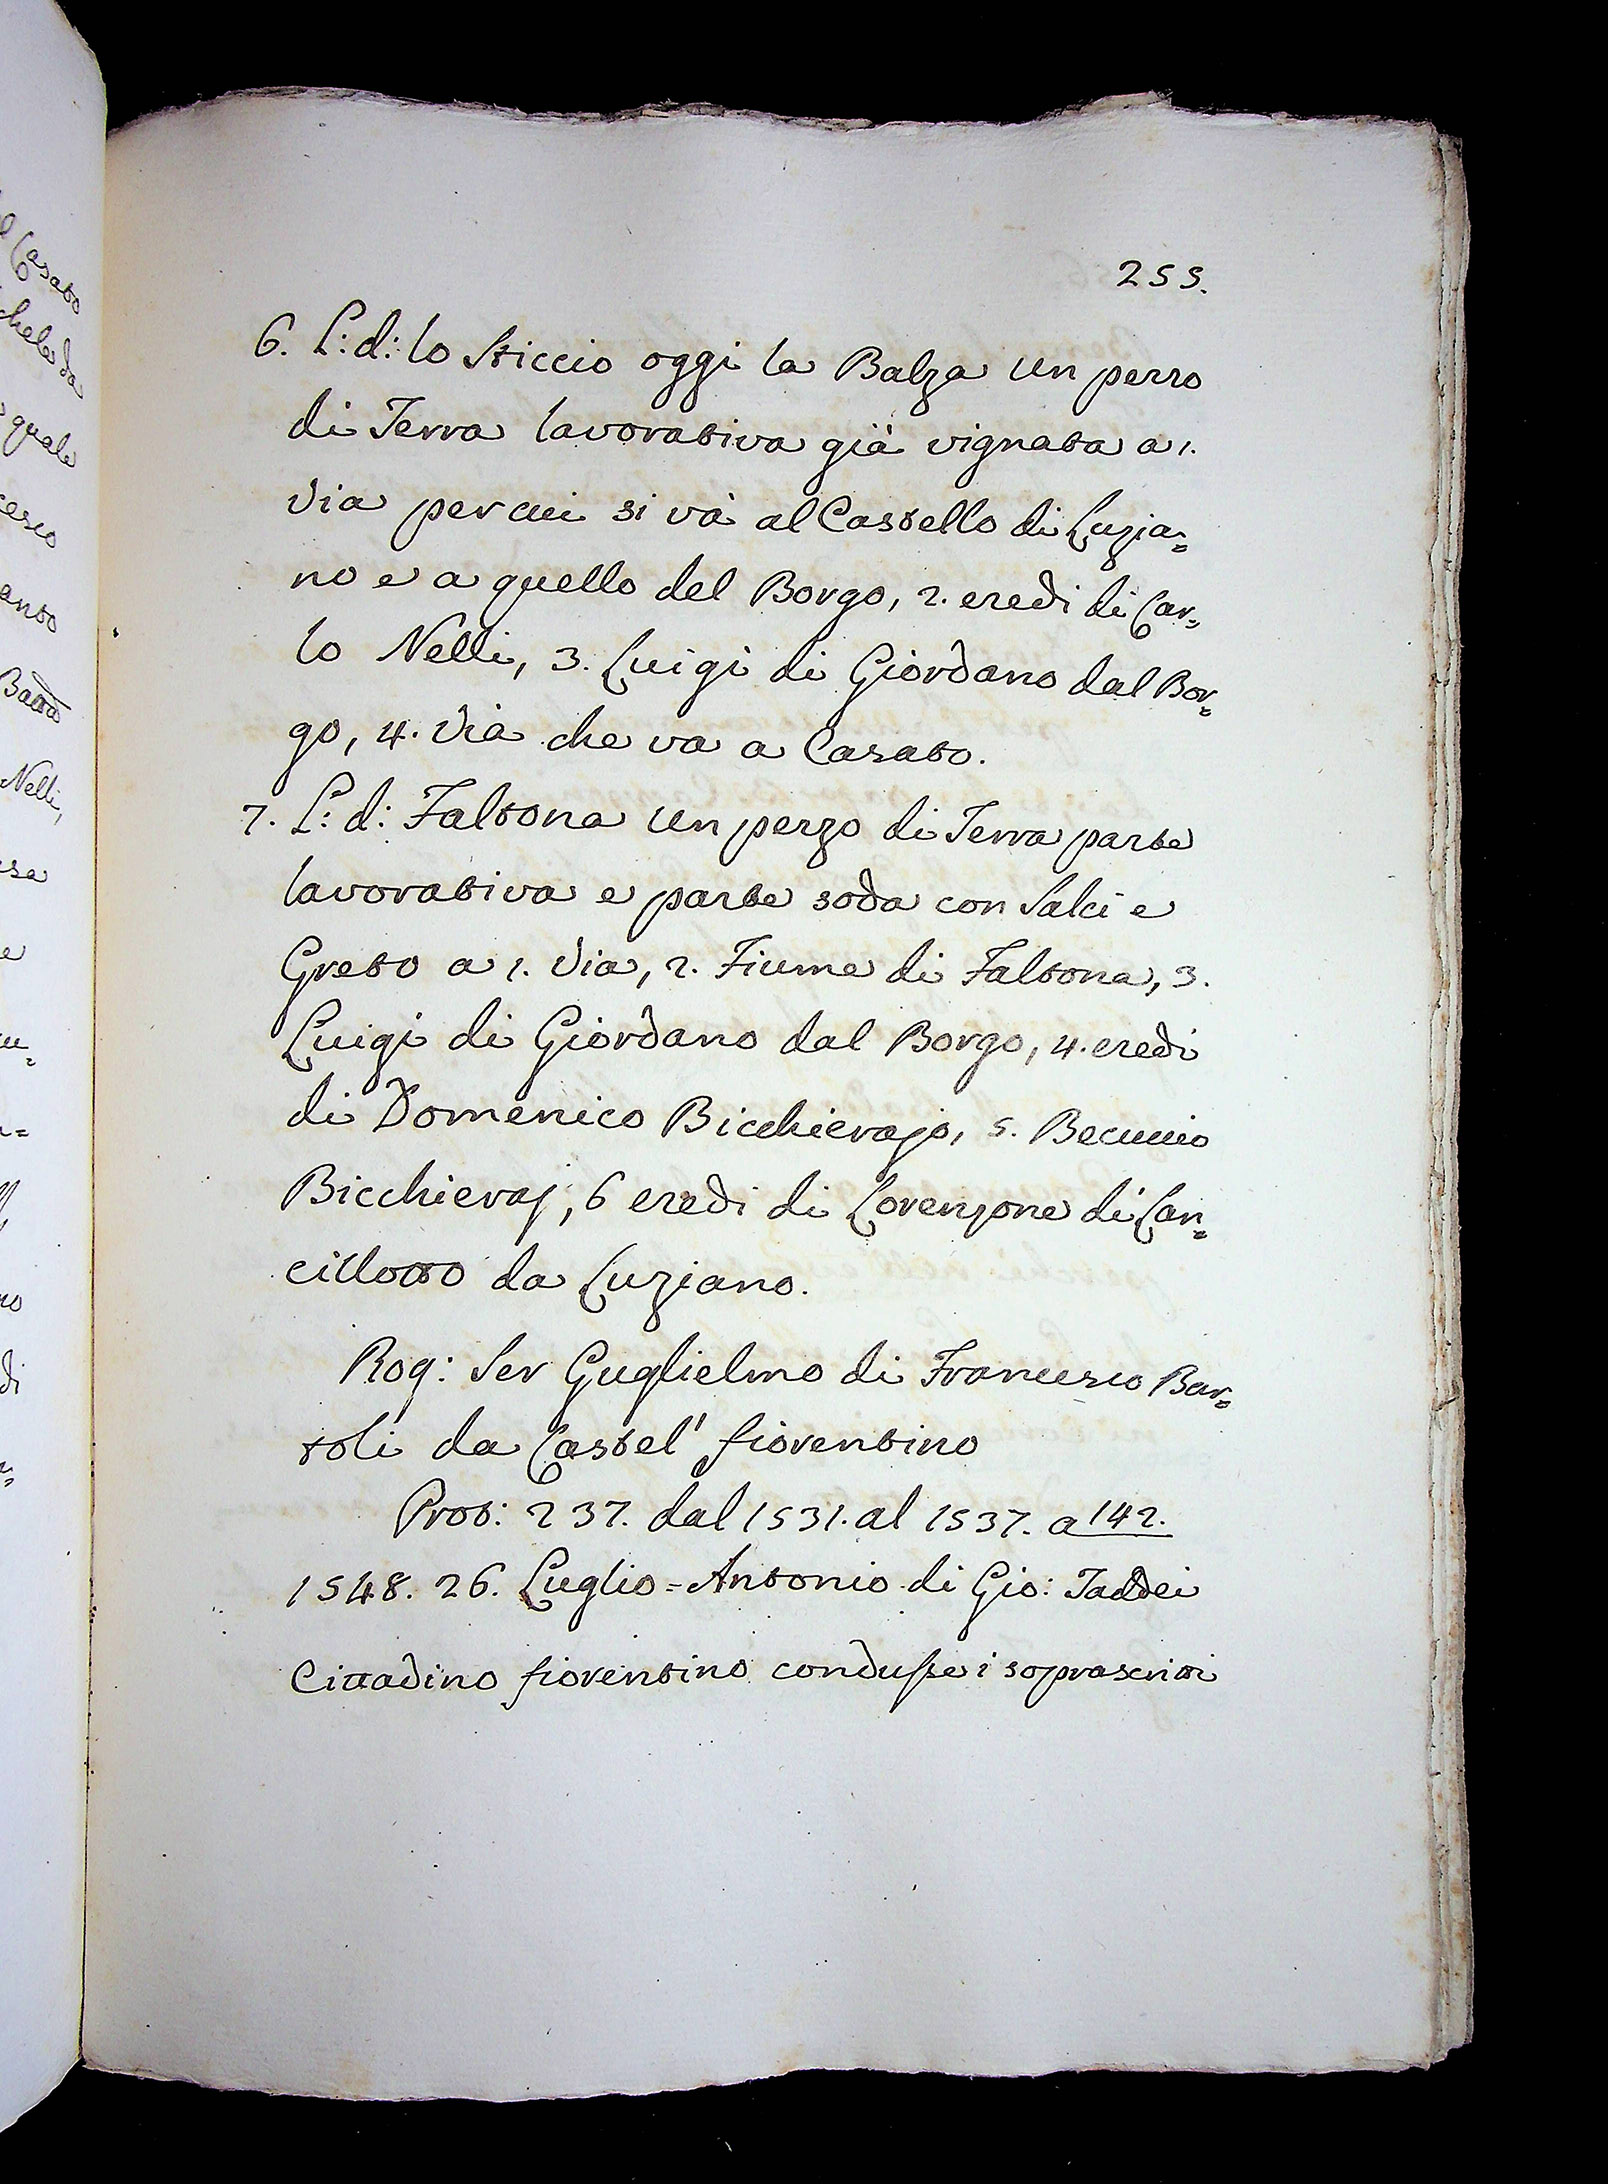 255.
6. L: d: lo Sticcio oggi la Balza un pezzo
di Terra lavorativa già vignata a 1.
Via per cui si và al Castello di Luzia=
no e a quello del Borgo, 2. eredi di Car=
lo Nelli, 3. Luigi di Giordano dal Bor=
go, 4. Via che va a Casato.
7. L: d: Faltona un pezzo di Terra parte
lavorativa e parte soda con Salci e
Greto a 1. Via, 2. Fiume di Faltona, 3.
Luigi di Giordano dal Borgo, 4. eredi
di Domenico Bicchierajo, 5.
Bicchieraj, 6 eredi di Lorenzone di Lan=
cillotto da Luziano.
Rog: Ser Guglielmo di Francesco Bar=
toli da Castel' fiorentino
Prot: 237. dal 1531. al 1537. a 142.
1548. 26. Luglio = Antonio di Gio: Taddei
Cittadino fiorentino condusse i soprascritti